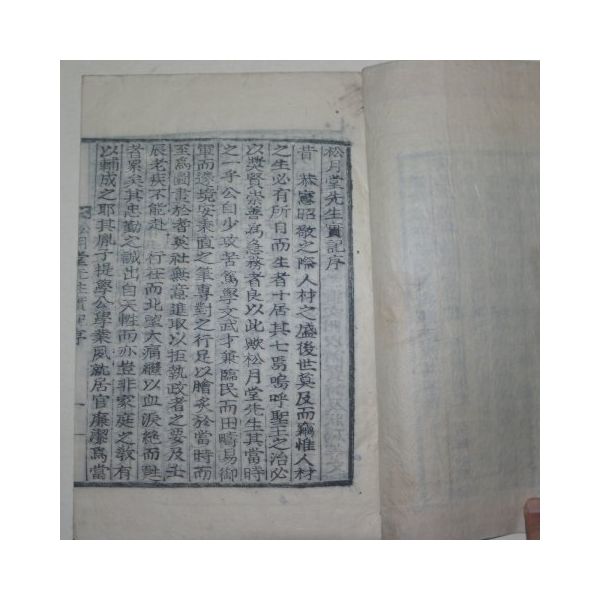 松月堂先生實記序
昔 恭憲昭敬之際人材之盛後世莫及而竊惟人材
之生必有所自而生者十居其七焉嗚呼聖王之治必
以奬賢崇善爲急務者良以此歟松月堂先生其當時
之一乎公自少攻苦篤學文武才兼臨民而田疇易御
軍而邊境安秉直之筆專對之行足以膾炙於當時而
至爲圖畫於耆英社無意進取以拒執政者之要及壬
辰老疾不能赴 行在而北望大痛繼以血淚絶而甦
者累矣其忠勤之誠出自天性而亦豈非家庭之敎有
以輔成之耶其胤子提學公學業夙就居官廉潔爲當
松月堂先生實記序
一